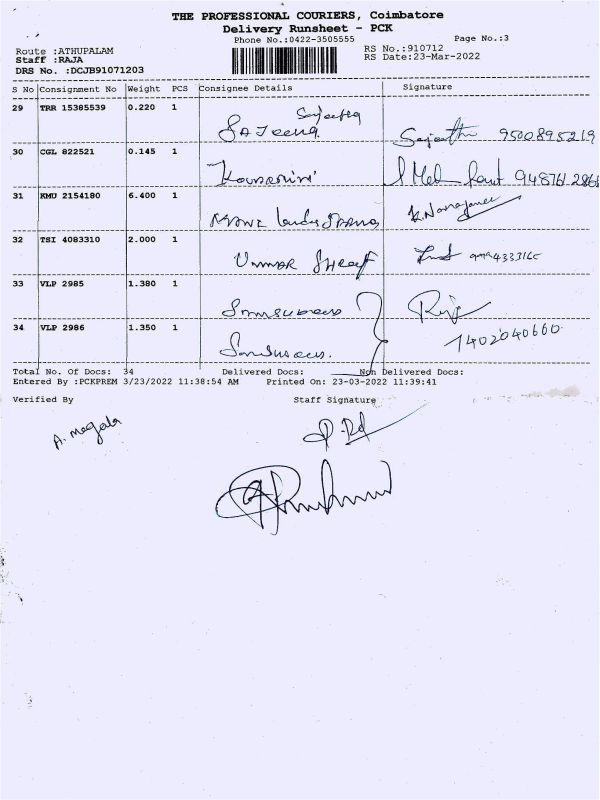 THE PROFESSIONAL COURIERS, Coimbatore
Delivery Runsheet - PCK
Phone No.:0422-3505555 Page No.:3
Route :ATHUPALAM RS No.:910712
Staff :RAJA RS Date:23-Mar-2022
DRS No. :DCJB91071203
S No Consignment No Weight PCS Consignee Details Signature
29 TRR 15385539 0.220 1
30 CGL 822521 0.145 1
31 KMU 2154180 6.400 1 K.Narayanee
32 TSI 4083310 2.000 1 UMMAR
33 VLP 2985 1.380 1
7402040660
34 VLP 2986 1.350 1
Total No. Of Docs: 34 Delivered Docs: Non Delivered Docs:
Entered By :PCKPREM 3/23/2022 11:38:54 AM Printed On: 23-03-2022 11:39:41
Verified By Staff Signature
A. megala